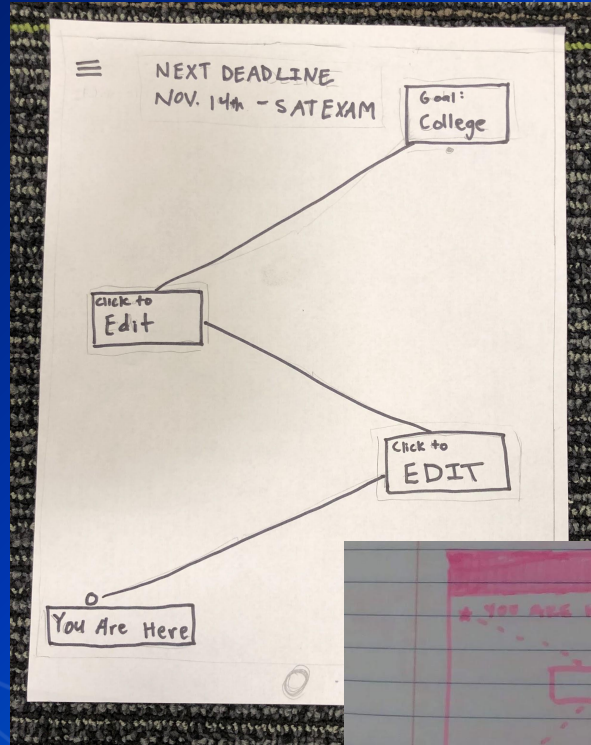 NEXT DEADLINE
NOV. 14th - SAT EXAM
Goal:
College
Click to
Edit
Click to
EDIT
You Are Here
YOU ARE